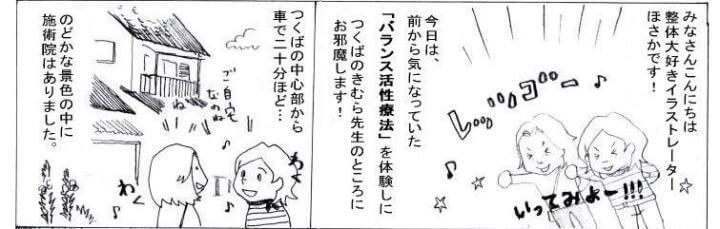 みなさんこんにちは
整体大好きイラストレーター
ほさかです！
レッツゴー
♪
いってみよー!!!
今日は、
前から気になっていた
「バランス活性療法」を体験しに
つくばのきむら先生のところに
お邪魔します！
つくばの中心部から
車で二十分ほど…
ご自宅
なのね
わく
わく
のどかな景色の中に
施術院はありました。